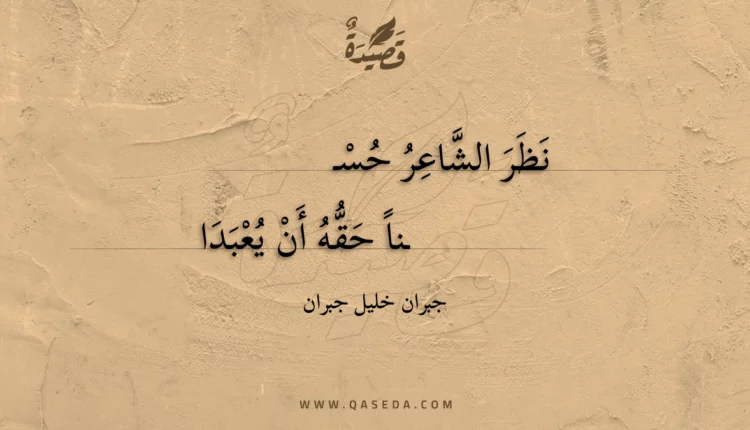 قَصِيدَةٌ
نَظَرَ الشَّاعِرُ حُسْـ
ـناً حَقُّهُ أَنْ يُعْبَدَا
جبران خليل جبران
WWW.QASEDA.COM